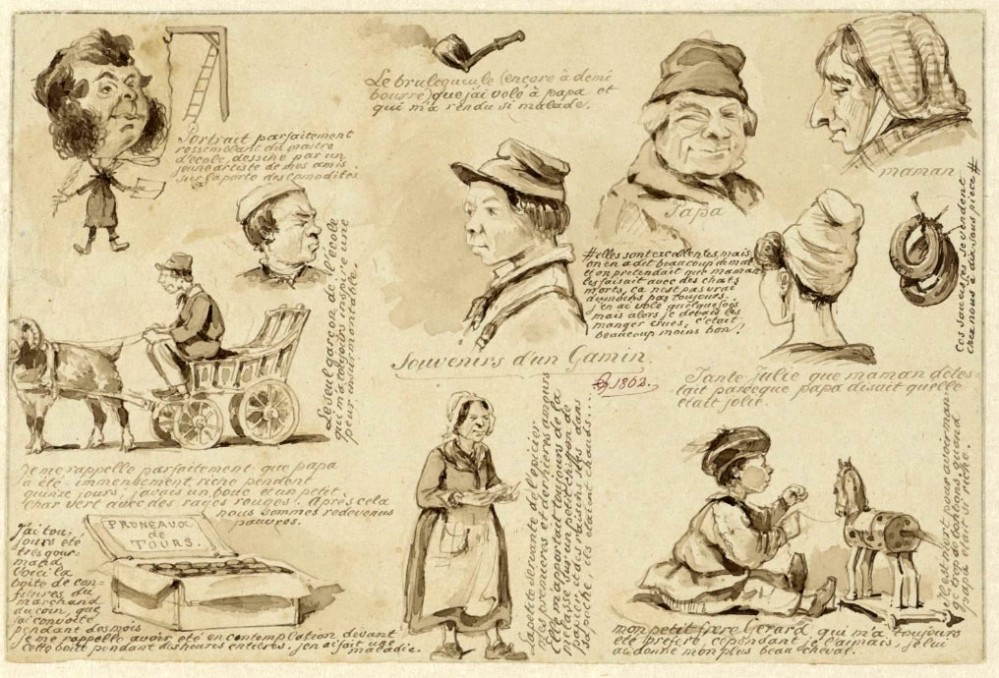 Portrait parfaitement
ressemblant du maitre
d'école, dessiné par un
jeune artiste de mes amis
sur la porte des comodités
Le brulegueule (encore à demi
bourré) que j'ai volé à papa et
qui m'a rendu si malade.
Papa
maman
Le seul garçon de l'école
qui m'a toujours inspiré une
peur insurmontable.
# elles sont excellentes mais
on en a dit beaucoup de mal
et on pretendait que maman
les faisait avec des chats
morts, ça n'est pas vrai
du moins pas toujours.
j'en ai volé quelquefois
mais alors je devais les
manger crues, c'était
beaucoup moins bon!
Ces saucisses se vendent
chez nous à dix sous piece #
Souvenirs d'un Gamin.
1802.
Tante Julie que maman detes-
tait parceque papa disait quelle
était jolie.
Je me rappelle parfaitement que papa
a été immensement riche pendent
quinze jours; j'avais un bouc et un petit
char vert avec des rayes rouges! Après cela
nous sommes redevenus
pauvres.
J'ai tou-
jours été
très gour-
mand
Voici la
boite de con-
fitures du
marchand
du coin, que
j'ai convoité
pendant des mois
je me rappelle avoir été en contemplation devant
cette boite pendant des heures entières. j'en ai fait une
maladie.
PRUNEAUX
de
TOURS.
La petite servante de l'épicier
mes premières et dernières amours
elle m'apportait toujours de la
melasse sur un petit chiffon de
papier et des raisins secs dans
sa poche, ils étaient chauds...
Il est mort pour avoir man-
gé trop de bonbons, quand
papa était si riche.
mon petit frère Gérard qui m'a toujours
été préféré cependant je l'aimais, je lui
ai donné mon plus beau cheval.